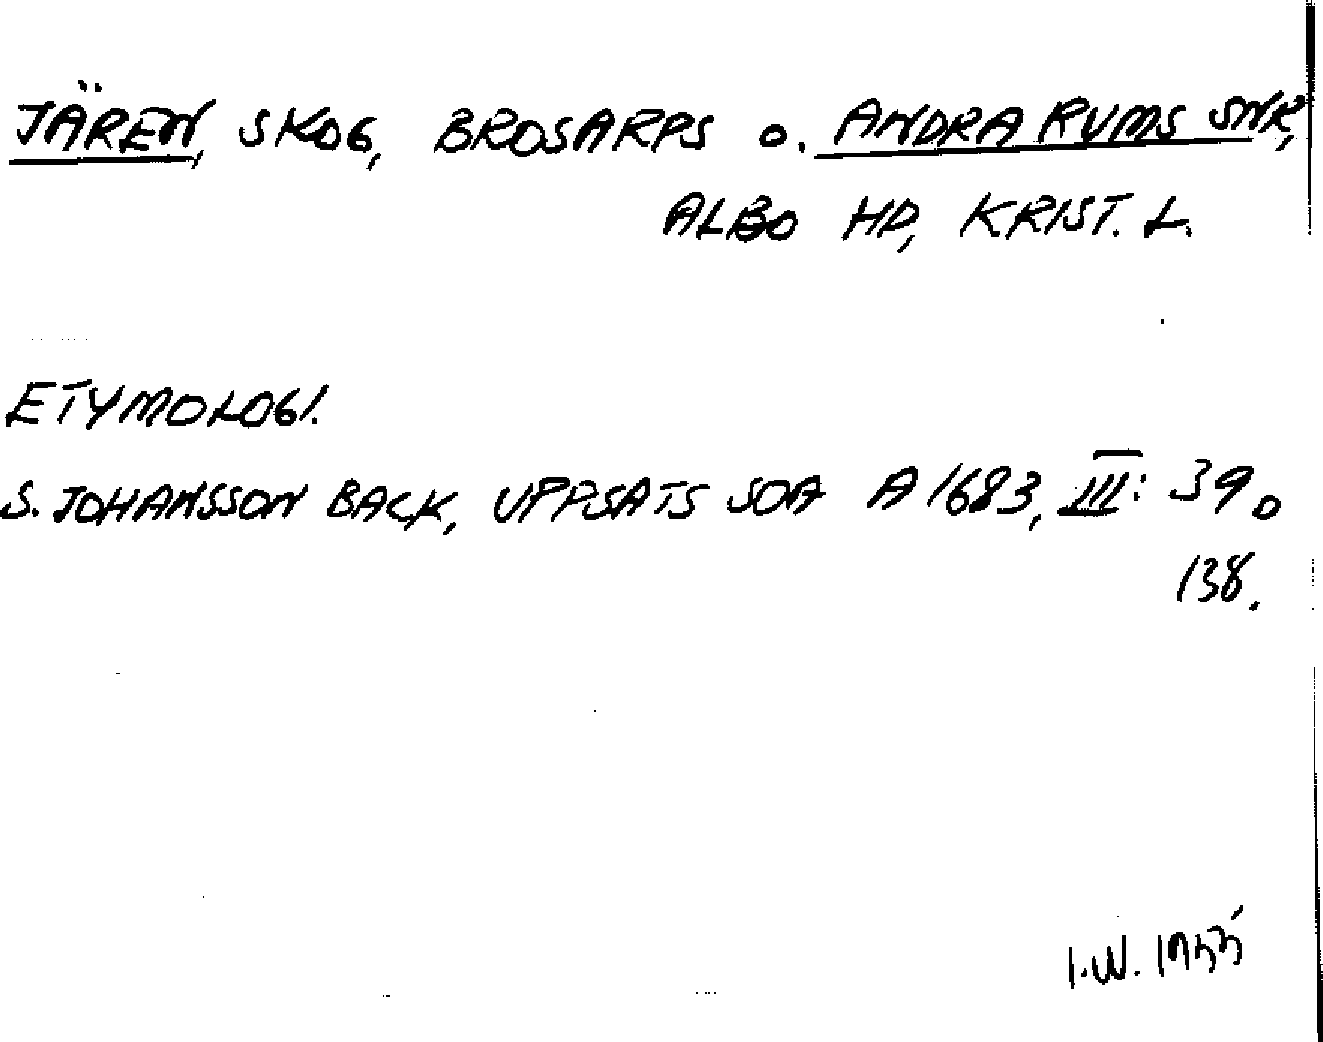 JÄREN, SKOG, BROSARPS o. ANDRARUMS SNR,
ALBO HD, KRIST. L.
ETYMOLOGI.
S. JOHANSSON BACK, UPPSATS SOA A 1683, III: 39 o
138.
I.W. 1955